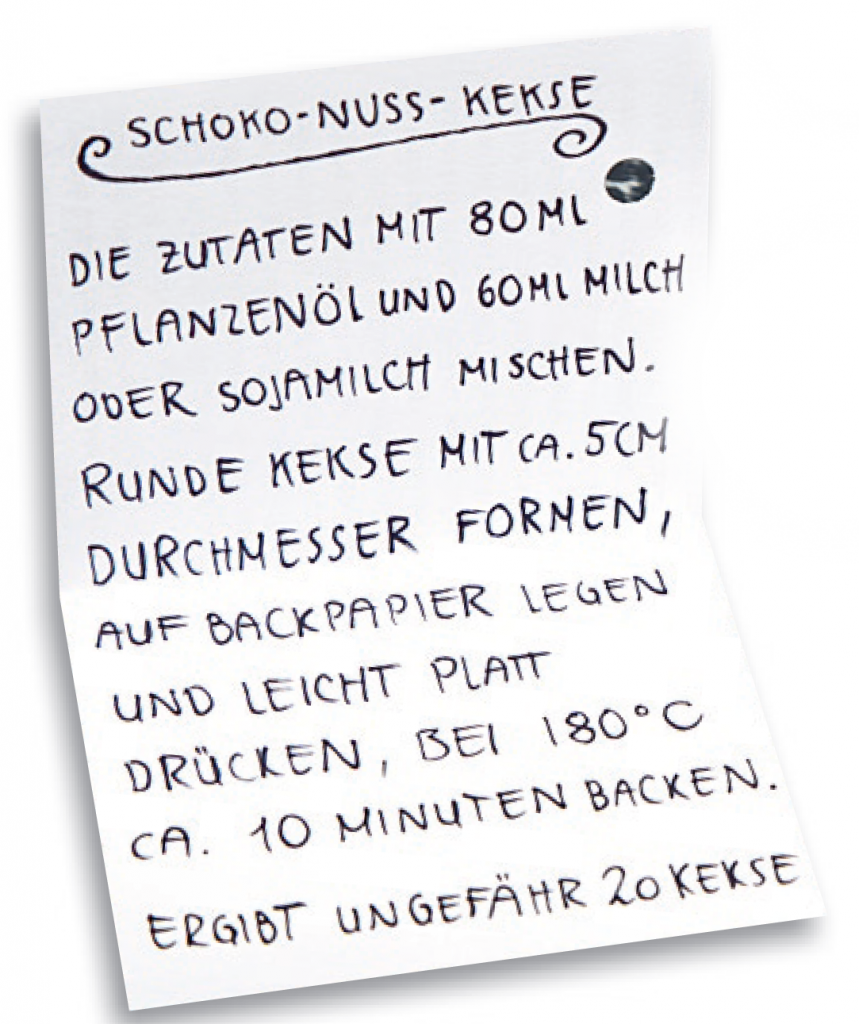 SCHOKO-NUSS-KEKSE
DIE ZUTATEN MIT 80 ML
PFLANZENÖL UND 60ML MILCH
ODER SOJAMILCH MISCHEN.
RUNDE KEKSE MIT CA. 5CM
DURCHMESSER FORMEN,
AUF BACKPAPIER LEGEN
UND LEICHT PLATT
DRÜCKEN, BEI 180°C
CA. 10 MINUTEN BACKEN.
ERGIBT UNGEFÄHR 20 KEKSE